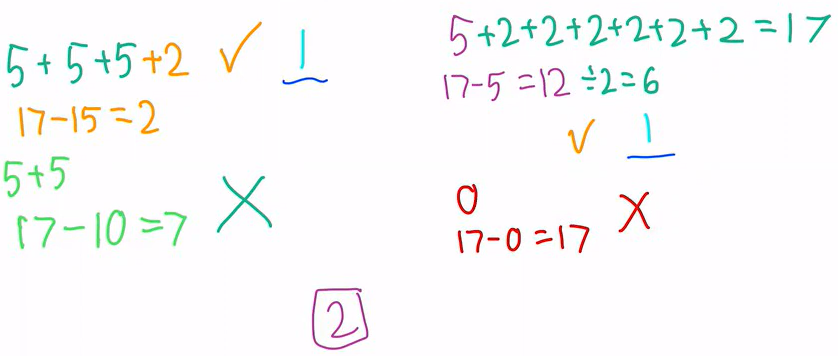 5+5+5+2 ✓ 1
17-15=2
5+5
17-10=7 X
5+2+2+2+2+2+2=17
17-5=12÷2=6
✓ 1
0
17-0=17 X
2